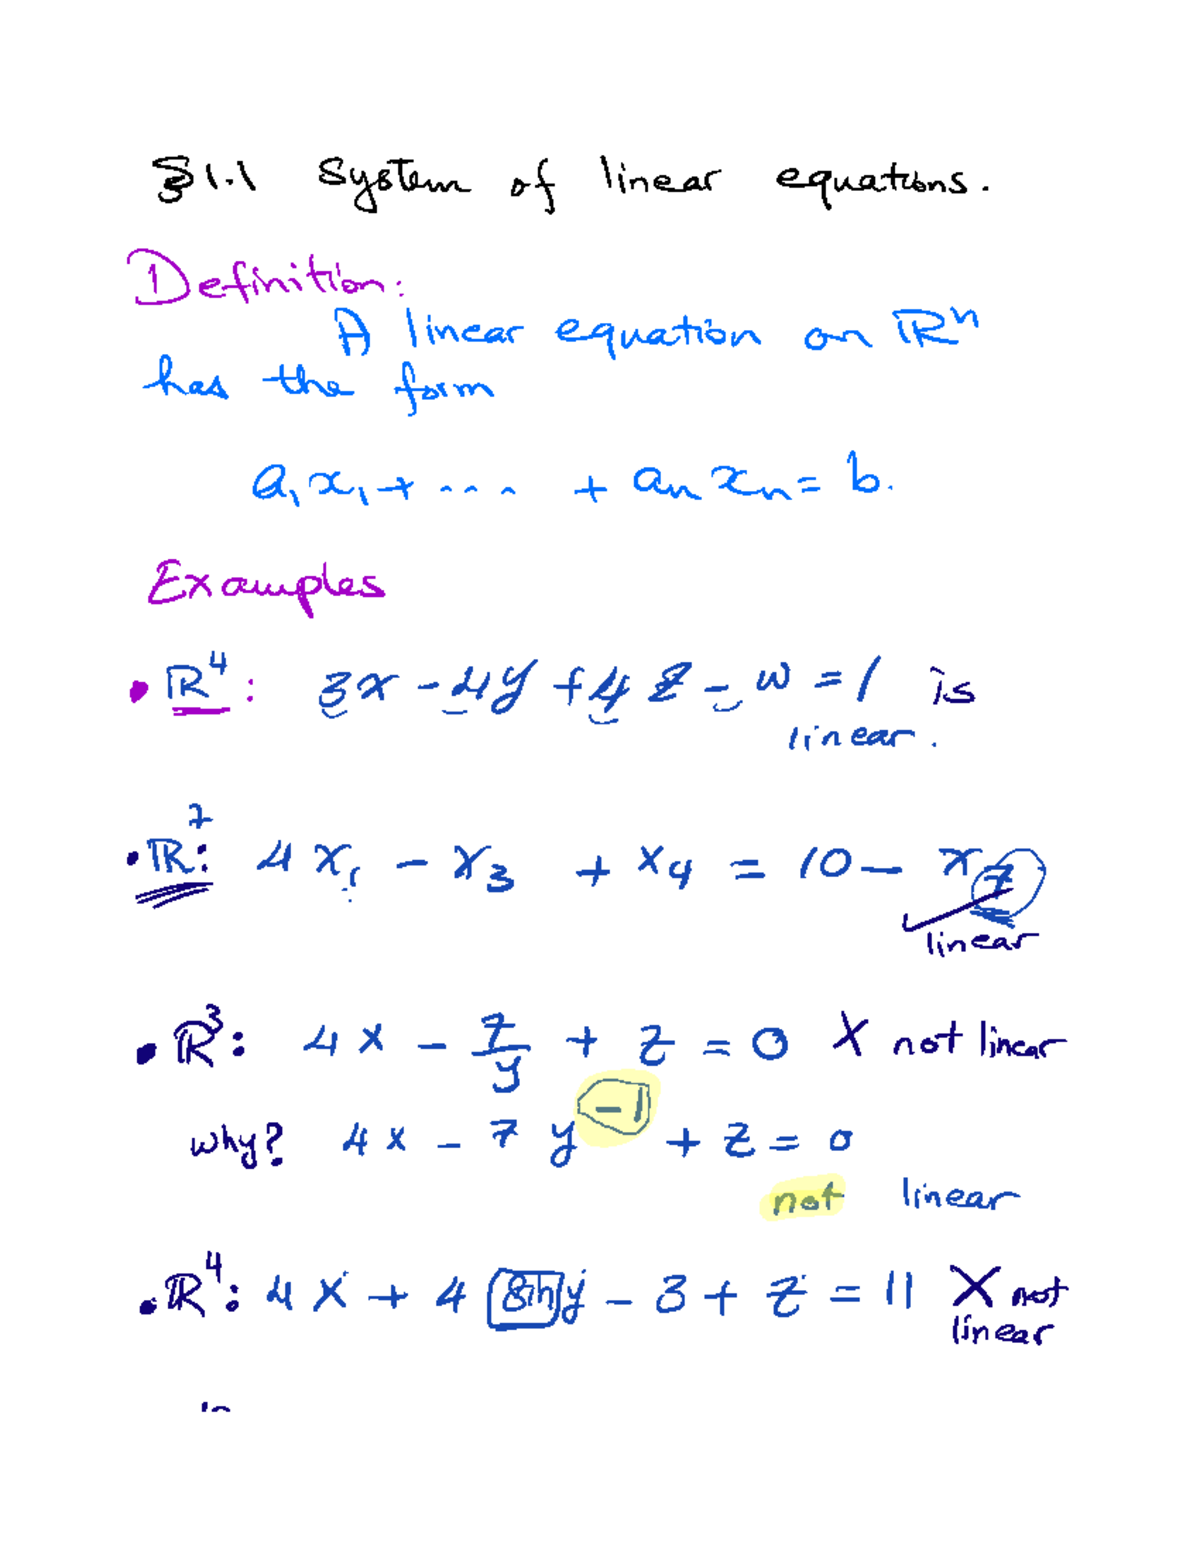 §1.1 System of linear equations.
Definition:
A linear equation on ℝⁿ
has the form
a₁x₁ + ... + aₙxₙ = b.
Examples
• ℝ⁴: 3x - 4y + 4z - w = 1 is
linear.
• ℝ⁷: 4x₁ - x₃ + x₄ = 10 - x₇
linear
• ℝ³: 4x - 7/y + z = 0 X not linear
why? 4x - 7y⁻¹ + z = 0
not linear
• ℝ⁴: 4x + 4 sin y - 3 + z = 11 X not
linear